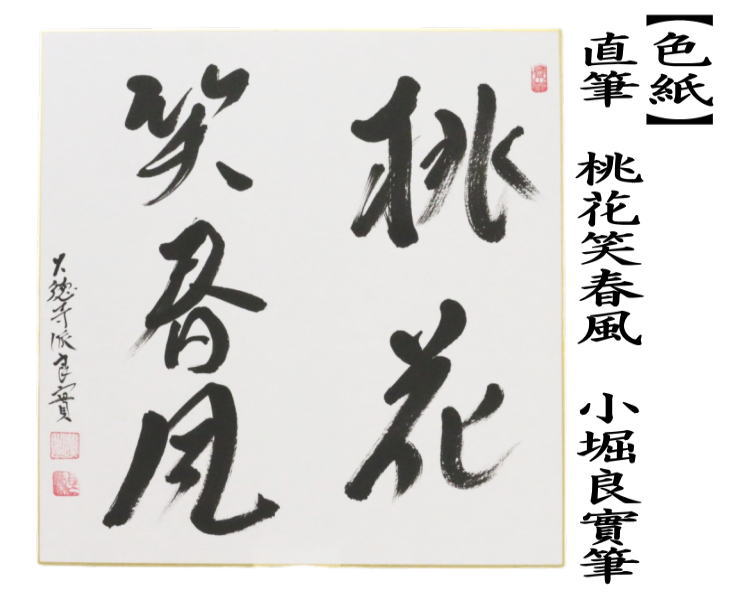 【色紙】
直筆 桃花笑春風 小堀良實筆
桃花
笑春风
大徳寺派良實